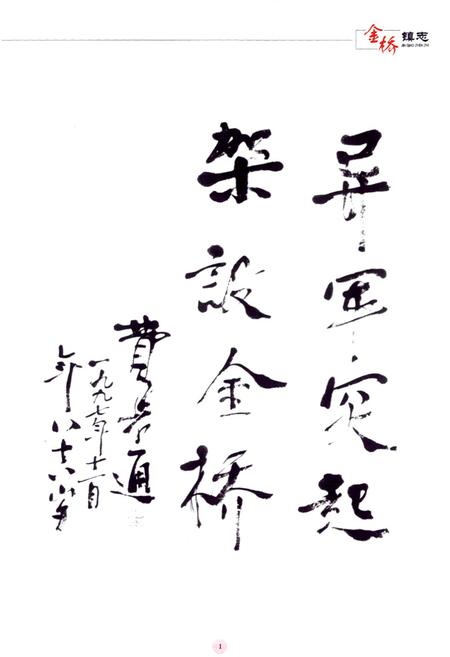 金桥 镇志
JIN QIAO ZHEN ZHI
异军突起
架設金橋
費孝通
一九九七年十一月
年八十八岁
1